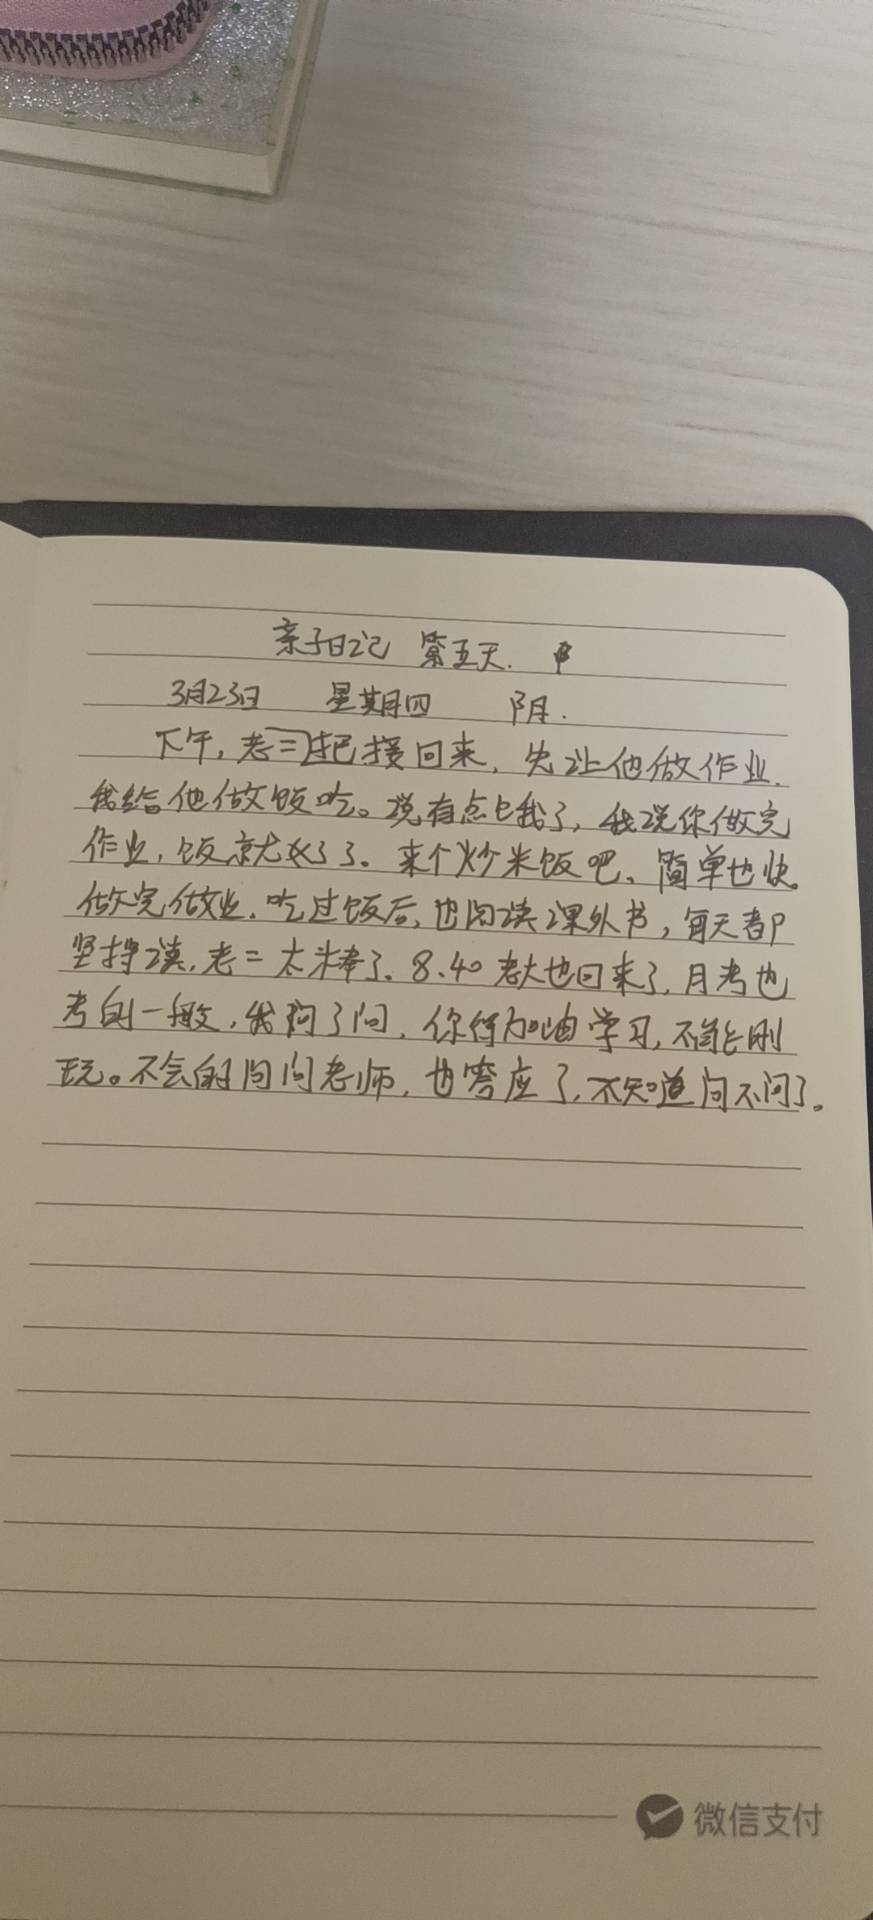 亲子日记 第五天.
3月23日 星期四 阴.
下午,老二把接回来,先让他做作业.
我给他做饭吃。说有点饿了,我说你做完
作业,饭就好了。来个炒米饭吧、简单也快。
做完做业.吃过饭后,也阅读课外书,每天都
坚持读,老二太棒了.8.40老大也回来了,月考也
考的一般,我问了问,你得加油学习,不能老
玩。不会的问问老师,也答应了,不知道问不问了。
微信支付